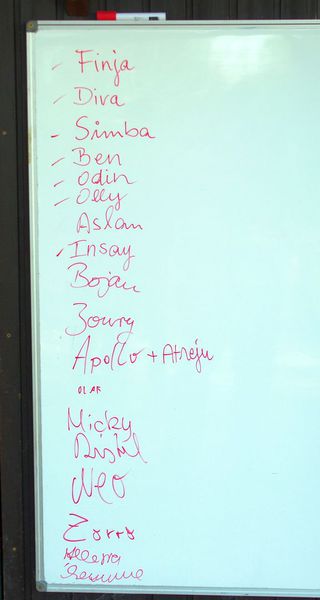 - Finja
- Diva
- Simba
- Ben
- Odin
- Olly
Aslan
- Insay
Bojan
Zourg
Apollo + Atreju
OLAF
Micky
Distel
Neo
Zorro